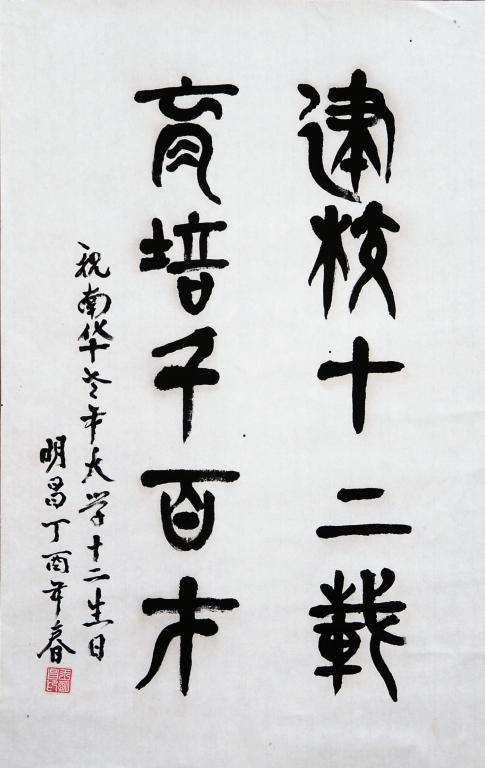 建校十二載
育培千百才
祝南华老年大学十二生日
明昌丁酉年春